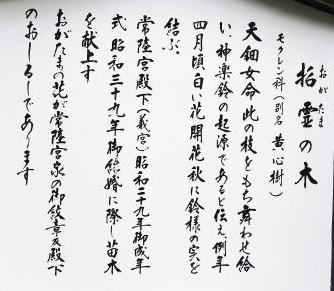 おがたま
招霊の木
モクレン科(別名 黄心樹)
天鈿女命此の枝をもち舞わせ給
い、神楽鈴の起源であると伝え例年
四月頃白い花開花秋に鈴様の実を
結ぶ。
常陸宮殿下(義宮)昭和二十九年御成年
式昭和三十九年御結婚に際し苗木
を献上す
おがたまの花が常陸宮家の御紋章及殿下
のおしるしであります